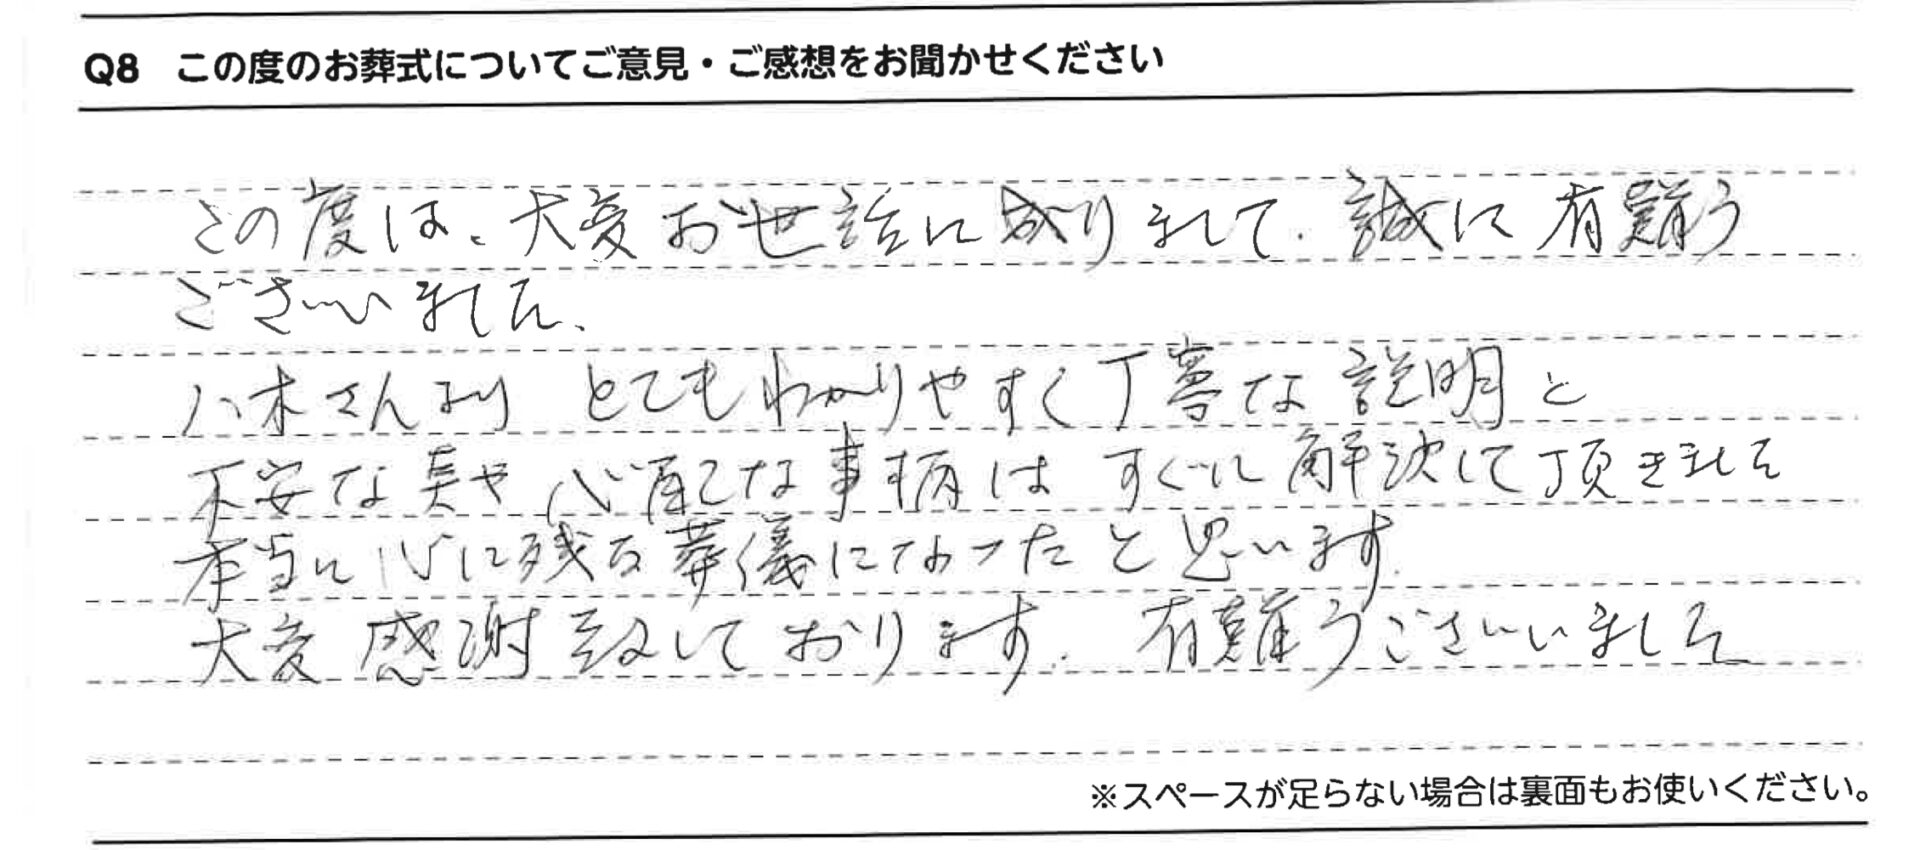 Q8 この度のお葬式についてご意見・ご感想をお聞かせください
この度は、大変お世話に成りまして、誠に有難う
ございました、
八木さんより とてもわかりやすく丁寧な説明と
不安な点や 心配な事柄は すぐに解決して頂きました
本当に心に残る葬儀になったと思います。
大変感謝致しております。有難うございました
※スペースが足らない場合は裏面もお使いください。